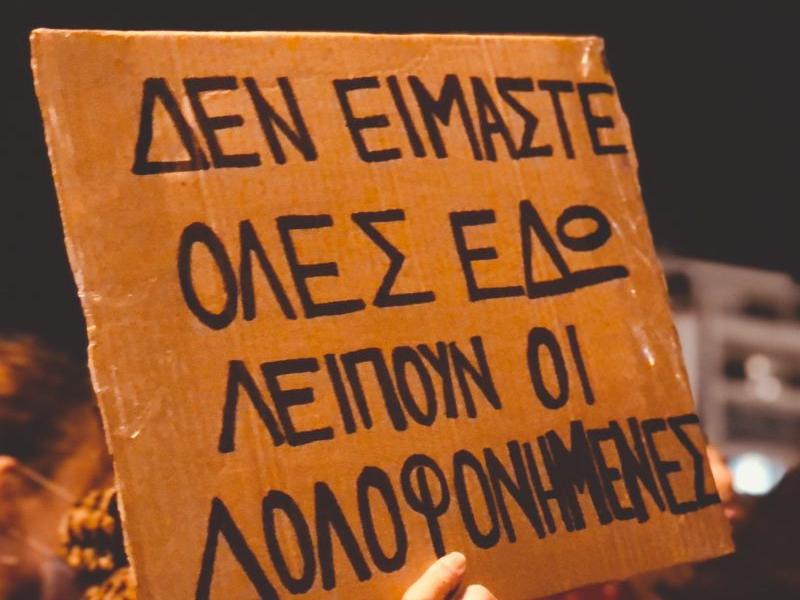 ΔΕΝ ΕΙΜΑΣΤΕ
ΟΛΕΣ ΕΔΩ
ΛΕΙΠΟΥΝ ΟΙ
ΔΟΛΟΦΟΝΗΜΕΝΕΣ